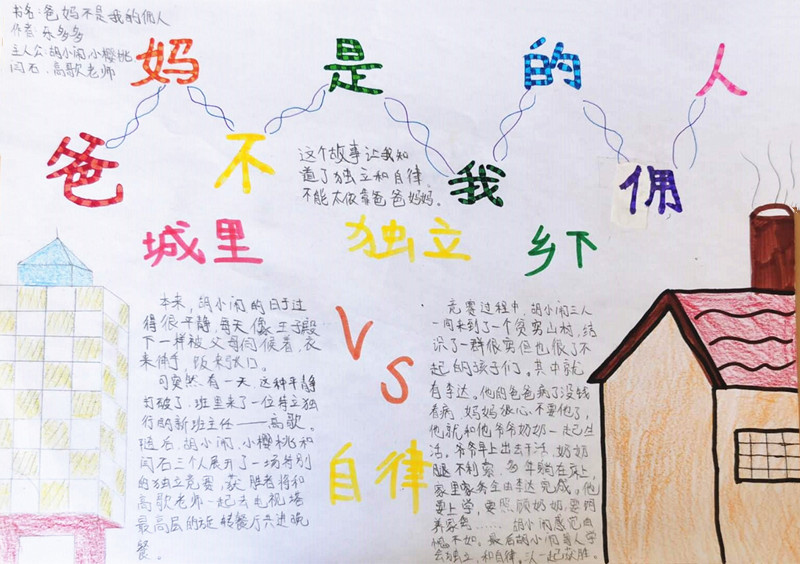 书名：爸妈不是我的佣人
作者：乐多多
主人公：胡小闹、小樱桃
闪石、高歌老师
爸妈不是我的佣人
这个故事让我知
道了独立和自律，
不能太依靠爸爸妈妈。
城里 独立 乡下
VS
自律
本来，胡小闹的日子过
得很平静，每天像王子殿
下一样被父母伺候着，衣
来伸手，饭来张口。
可突然有一天，这种平静
打破了，班里来了一位特立独
行的新班主任——高歌。
随后，胡小闹、小樱桃和
闪石三个人展开了一场特别
的独立竞赛，获胜者将和
高歌老师一起去电视塔
最高层的旋转餐厅共进晚
餐。
竞赛过程中，胡小闹三人
一同来到了一个贫穷山村，结
识了一群很穷但也很了不
起的孩子们。其中就
有李达。他的爸爸病了没钱
看病，妈妈狠心不要他了，
他就和他爷爷奶奶一起生
活，爷爷早上出去干活，奶奶
腿不利索，多年躺在床上，
家里家务全由李达完成。他
要上学，要照顾奶奶，要饲
养家禽……胡小闹感觉自
愧不如。最后胡小闹等人学
会独立，和自律。三人一起获胜。